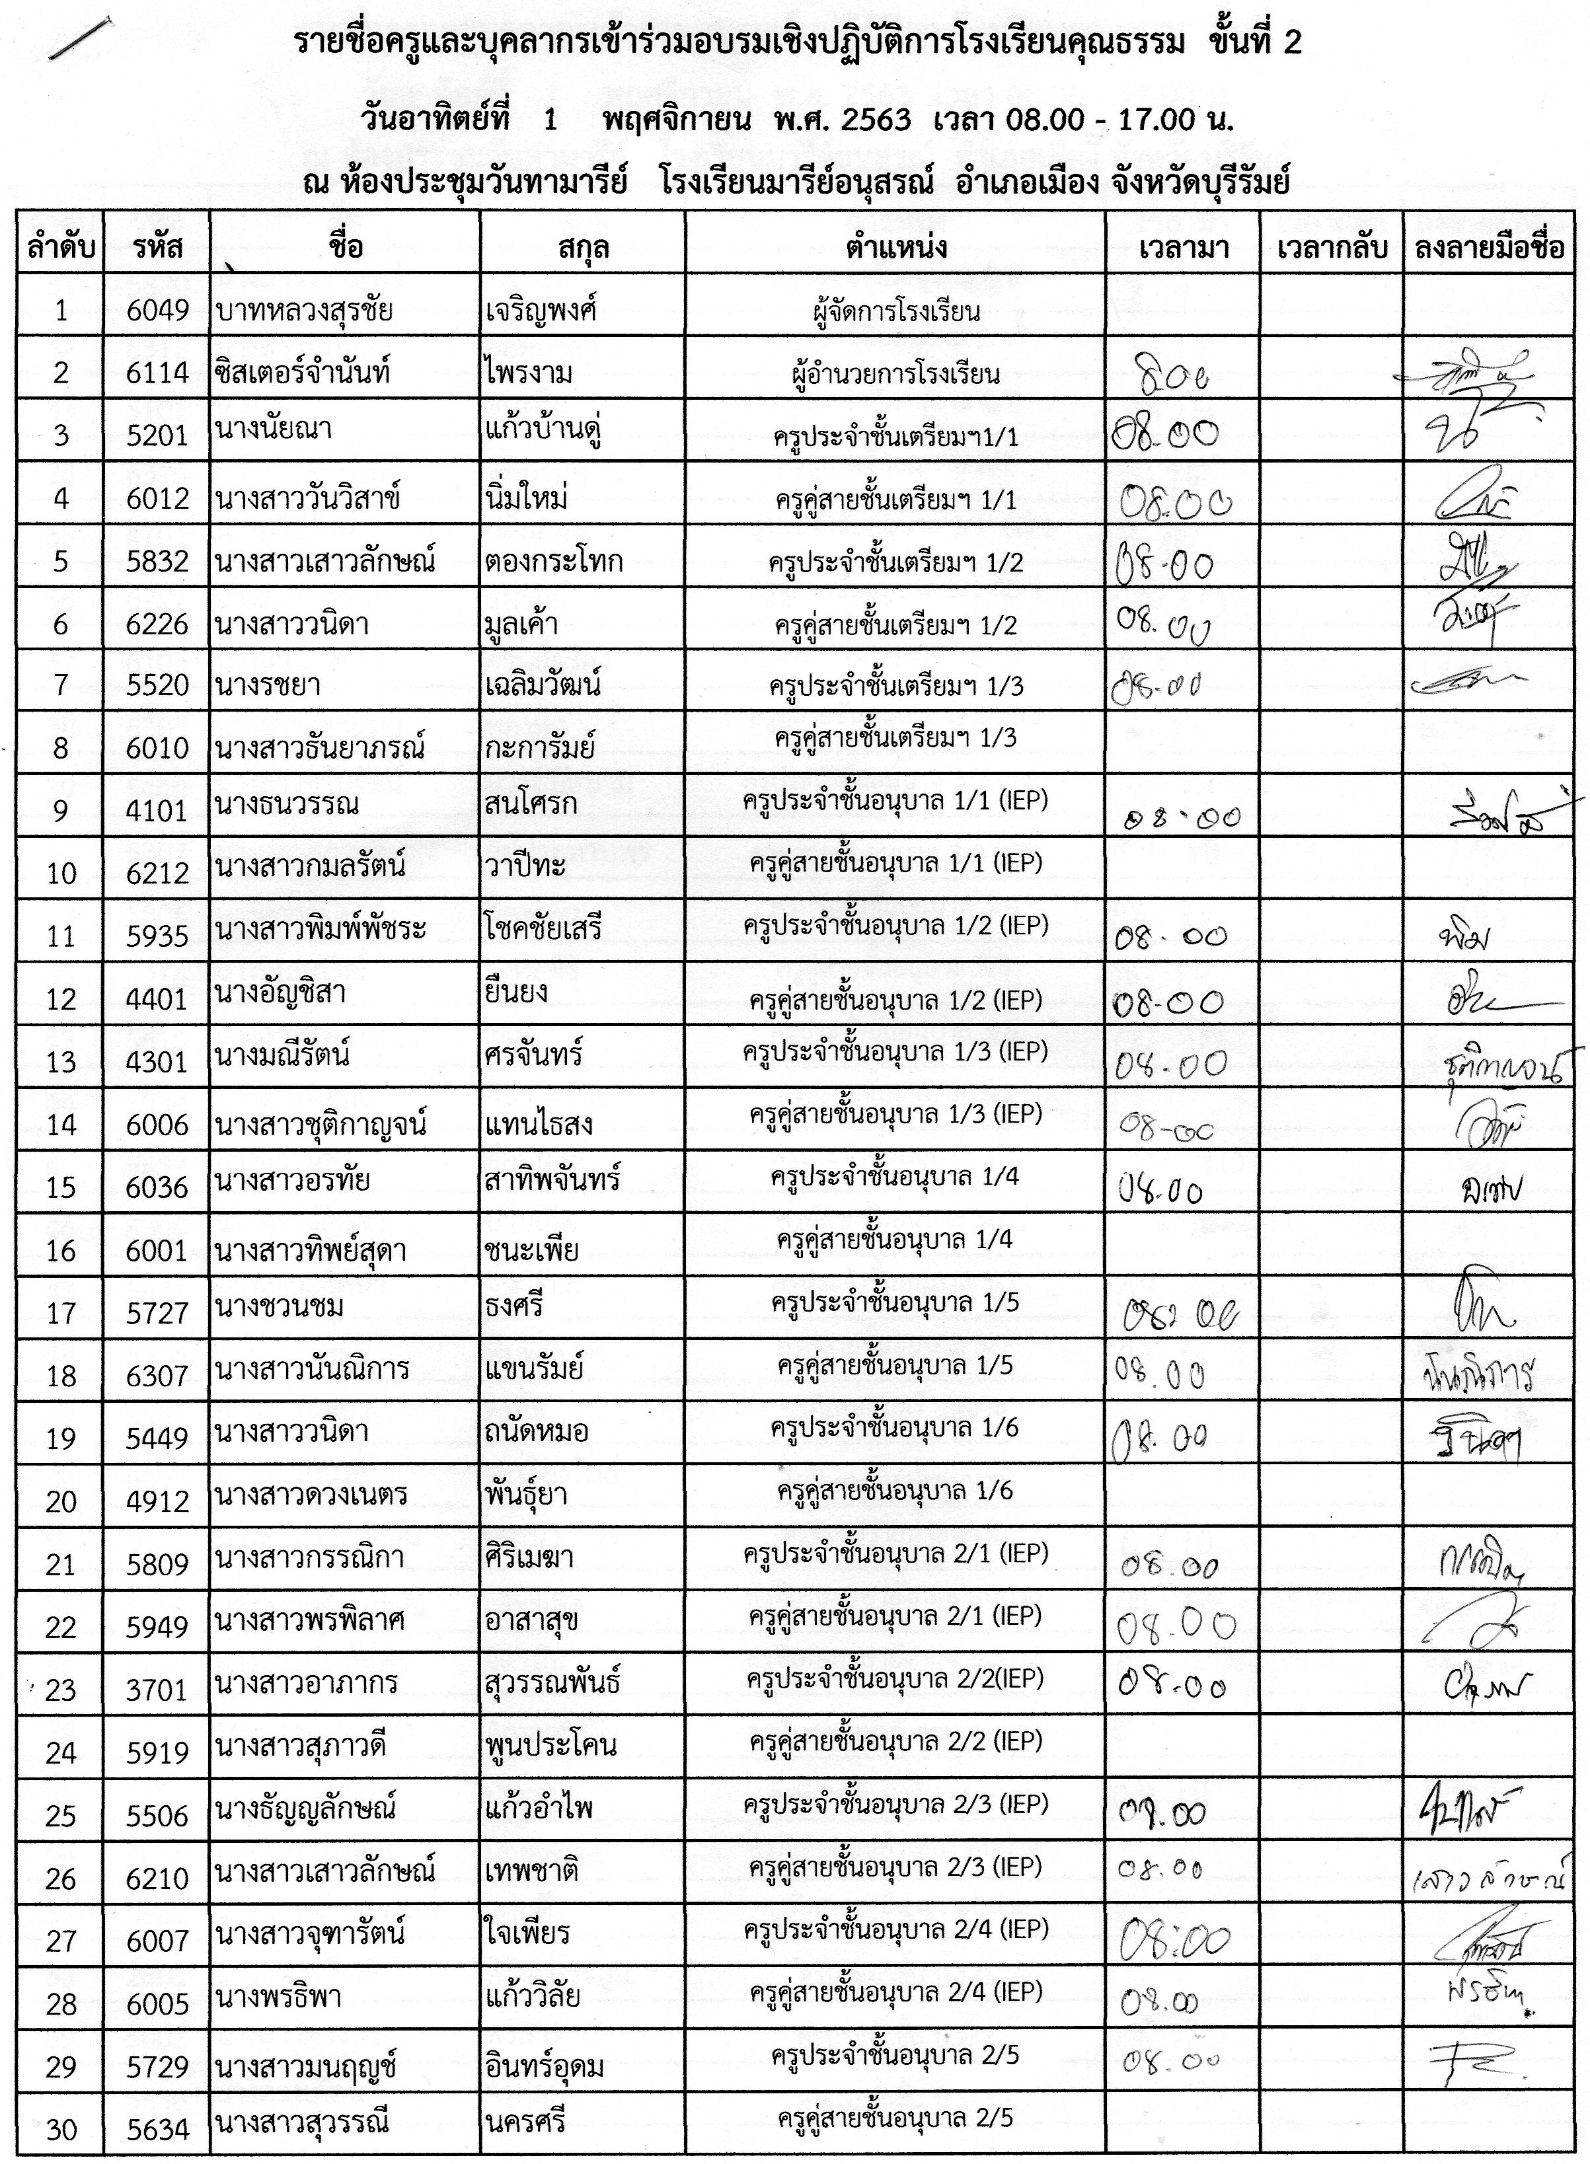 รายชื่อครูและบุคลากรเข้าร่วมอบรมเชิงปฏิบัติการโรงเรียนคุณธรรม ขั้นที่ 2
วันอาทิตย์ที่ 1 พฤศจิกายน พ.ศ. 2563 เวลา 08.00 - 17.00 น.
ณ ห้องประชุมวันทามารีย์ โรงเรียนมารีย์อนุสรณ์ อำเภอเมือง จังหวัดบุรีรัมย์
ลำดับ รหัส ชื่อ สกุล ตำแหน่ง เวลามา เวลากลับ ลงลายมือชื่อ
1 6049 บาทหลวงสุรชัย เจริญพงศ์ ผู้จัดการโรงเรียน
2 6114 ซิสเตอร์จำนันท์ ไพรงาม ผู้อำนวยการโรงเรียน 8.00
3 5201 นางนัยณา แก้วบ้านดู่ ครูประจำชั้นเตรียมฯ1/1 08.00
4 6012 นางสาววันวิสาข์ นิ่มใหม่ ครูคู่สายชั้นเตรียมฯ 1/1 08.00
5 5832 นางสาวเสาวลักษณ์ ตองกระโทก ครูประจำชั้นเตรียมฯ 1/2 08.00
6 6226 นางสาววนิดา มูลเค้า ครูคู่สายชั้นเตรียมฯ 1/2 08.00
7 5520 นางรชยา เฉลิมวัฒน์ ครูประจำชั้นเตรียมฯ 1/3 08.00
8 6010 นางสาวธันยาภรณ์ กะการัมย์ ครูคู่สายชั้นเตรียมฯ 1/3
9 4101 นางธนวรรณ สนโศรก ครูประจำชั้นอนุบาล 1/1 (IEP) 08.00
10 6212 นางสาวกมลรัตน์ วาปีทะ ครูคู่สายชั้นอนุบาล 1/1 (IEP)
11 5935 นางสาวพิมพ์พัชระ โชคชัยเสรี ครูประจำชั้นอนุบาล 1/2 (IEP) 08.00 พิม
12 4401 นางอัญชิสา ยืนยง ครูคู่สายชั้นอนุบาล 1/2 (IEP) 08-00
13 4301 นางมณีรัตน์ ศรจันทร์ ครูประจำชั้นอนุบาล 1/3 (IEP) 08.00 ชุติกาญจน์
14 6006 นางสาวชุติกาญจน์ แทนไธสง ครูคู่สายชั้นอนุบาล 1/3 (IEP) 08-00
15 6036 นางสาวอรทัย สาทิพจันทร์ ครูประจำชั้นอนุบาล 1/4 08.00
16 6001 นางสาวทิพย์สุดา ชนะเพีย ครูคู่สายชั้นอนุบาล 1/4
17 5727 นางชวนชม ธงศรี ครูประจำชั้นอนุบาล 1/5 08.00
18 6307 นางสาวนันณิการ แขนรัมย์ ครูคู่สายชั้นอนุบาล 1/5 08.00 นันณิการ
19 5449 นางสาววนิดา ถนัดหมอ ครูประจำชั้นอนุบาล 1/6 08.00
20 4912 นางสาวดวงเนตร พันธุ์ยา ครูคู่สายชั้นอนุบาล 1/6
21 5809 นางสาวกรรณิกา ศิริเมฆา ครูประจำชั้นอนุบาล 2/1 (IEP) 08.00
22 5949 นางสาวพรพิลาศ อาสาสุข ครูคู่สายชั้นอนุบาล 2/1 (IEP) 08.00
23 3701 นางสาวอาภากร สุวรรณพันธ์ ครูประจำชั้นอนุบาล 2/2(IEP) 08.00
24 5919 นางสาวสุภาวดี พูนประโคน ครูคู่สายชั้นอนุบาล 2/2 (IEP)
25 5506 นางธัญญลักษณ์ แก้วอำไพ ครูประจำชั้นอนุบาล 2/3 (IEP) 08.00
26 6210 นางสาวเสาวลักษณ์ เทพชาติ ครูคู่สายชั้นอนุบาล 2/3 (IEP) 08.00 เสาวลักษณ์
27 6007 นางสาวจุฑารัตน์ ใจเพียร ครูประจำชั้นอนุบาล 2/4 (IEP) 08:00
28 6005 นางพรธิพา แก้ววิลัย ครูคู่สายชั้นอนุบาล 2/4 (IEP) 08.00 พรธิพา
29 5729 นางสาวมนฤญช์ อินทร์อุดม ครูประจำชั้นอนุบาล 2/5 08.00
30 5634 นางสาวสุวรรณี นครศรี ครูคู่สายชั้นอนุบาล 2/5